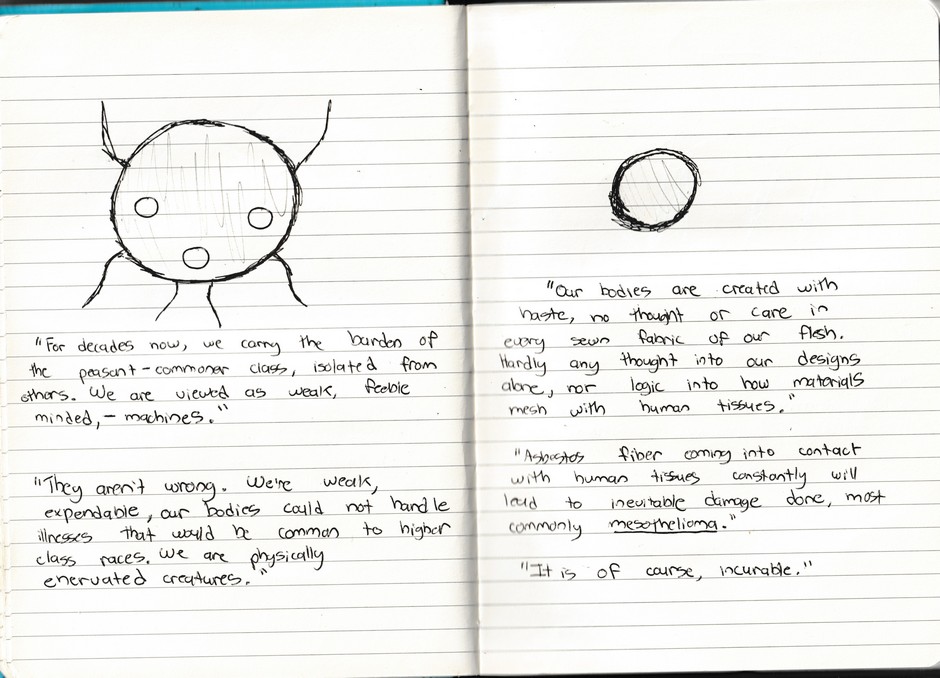 "For decades now, we carry the burden of
the peasant-commoner class, isolated from
others. We are viewed as weak, feeble
minded, - machines."
"They aren't wrong. We're weak,
expendable, our bodies could not handle
illnesses that would be common to higher
class races. We are physically
enervated creatures."
"Our bodies are created with
haste, no thought or care in
every sewn fabric of our flesh.
Hardly any thought into our designs
alone, nor logic into how materials
mesh with human tissues."
"Asbestos fiber coming into contact
with human tissues constantly will
lead to inevitable damage done, most
commonly mesothelioma."
"It is of course, incurable."